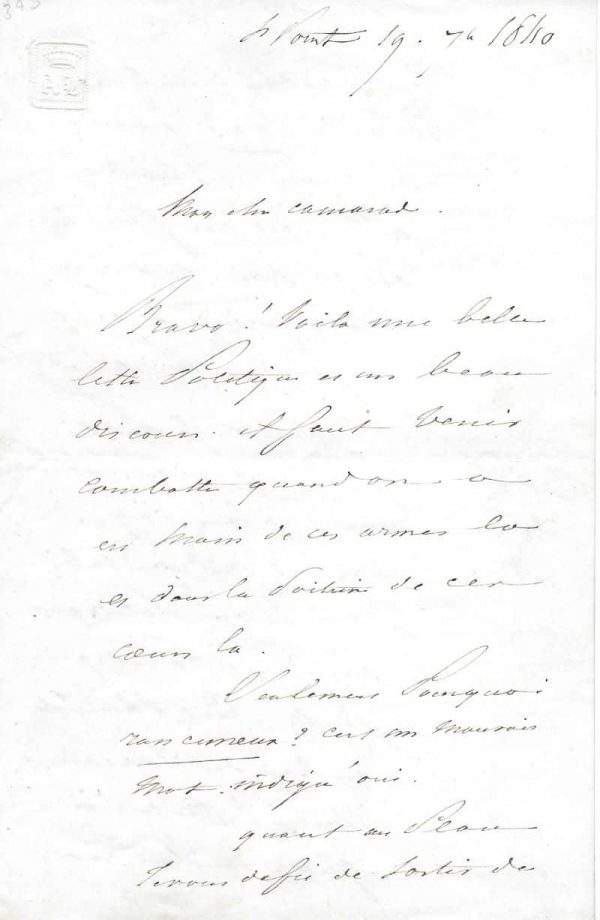 St Point 19. 7bre 1840
Mon cher camarade.
Bravo! Voila une belle
lettre Politique et un beau
discours. il faut venir
combattre quand on a
en main de ces armes la
et dans la Poitrine de ces
cœurs la.
Seulement Pourquoi
rancuneux? c'est un mauvais
mot. indigné oui.
quant au Plan
Je vous defie de sortir de